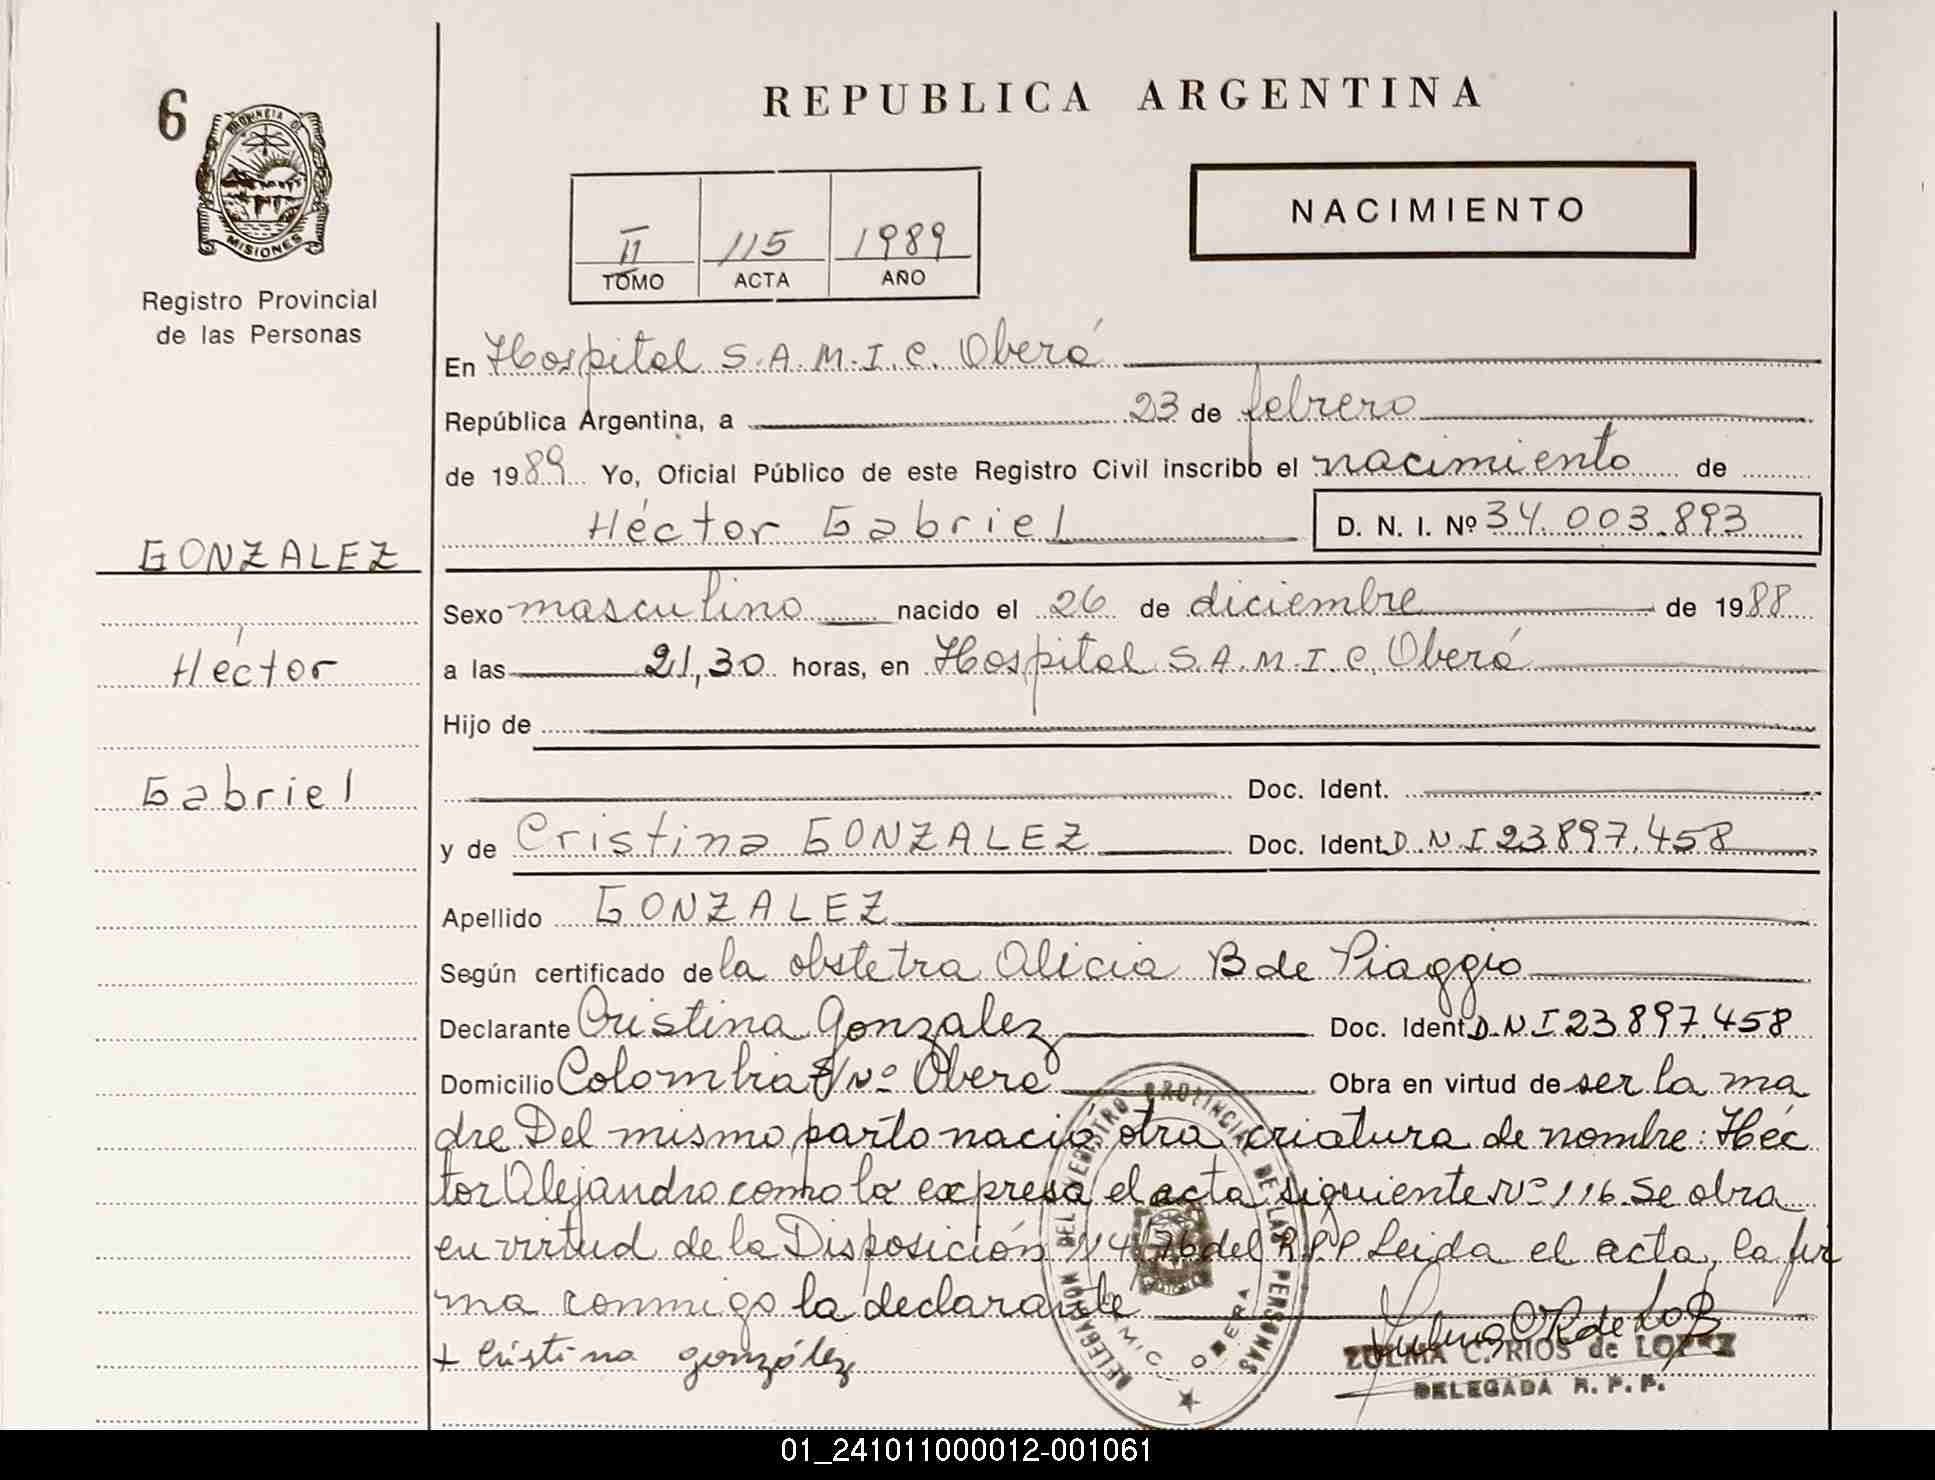 6
REPUBLICA ARGENTINA
PROVINCIA DE
MISIONES
Registro Provincial
de las Personas
II 115 1989
TOMO ACTA AÑO
NACIMIENTO
En Hospital S.A.M.I.C. Oberá
República Argentina, a 23 de febrero
de 1989 Yo, Oficial Público de este Registro Civil inscribo el nacimiento de
Héctor Gabriel D. N. I. Nº 34.003.893
GONZALEZ
Héctor
Gabriel
Sexo masculino nacido el 26 de diciembre de 1988
a las 21,30 horas, en Hospital S.A.M.I.C. Oberá
Hijo de
Doc. Ident.
y de Cristina GONZALEZ Doc. Ident D.N.I 23.897.458
Apellido GONZALEZ
Según certificado de la obstetra Alicia B de Piaggio
Declarante Cristina Gonzalez Doc. Ident D.N.I 23.897.458
Domicilio Colombia S/Nº Oberá Obra en virtud de ser la ma
dre Del mismo parto nació otra criatura de nombre: Héc
tor Alejandro como lo expresa el acta siguiente Nº 116. Se obra
en virtud de la Disposición 114/76 del R.P.P. Leida el acta, la fir
ma conmigo la declarante
+ Cristina gonzález
DELEGACION DEL REGISTRO PROVINCIAL DE LAS PERSONAS
OBERA
ZULMA C. RIOS de LOPEZ
DELEGADA R. P. P.
01_241011000012-001061